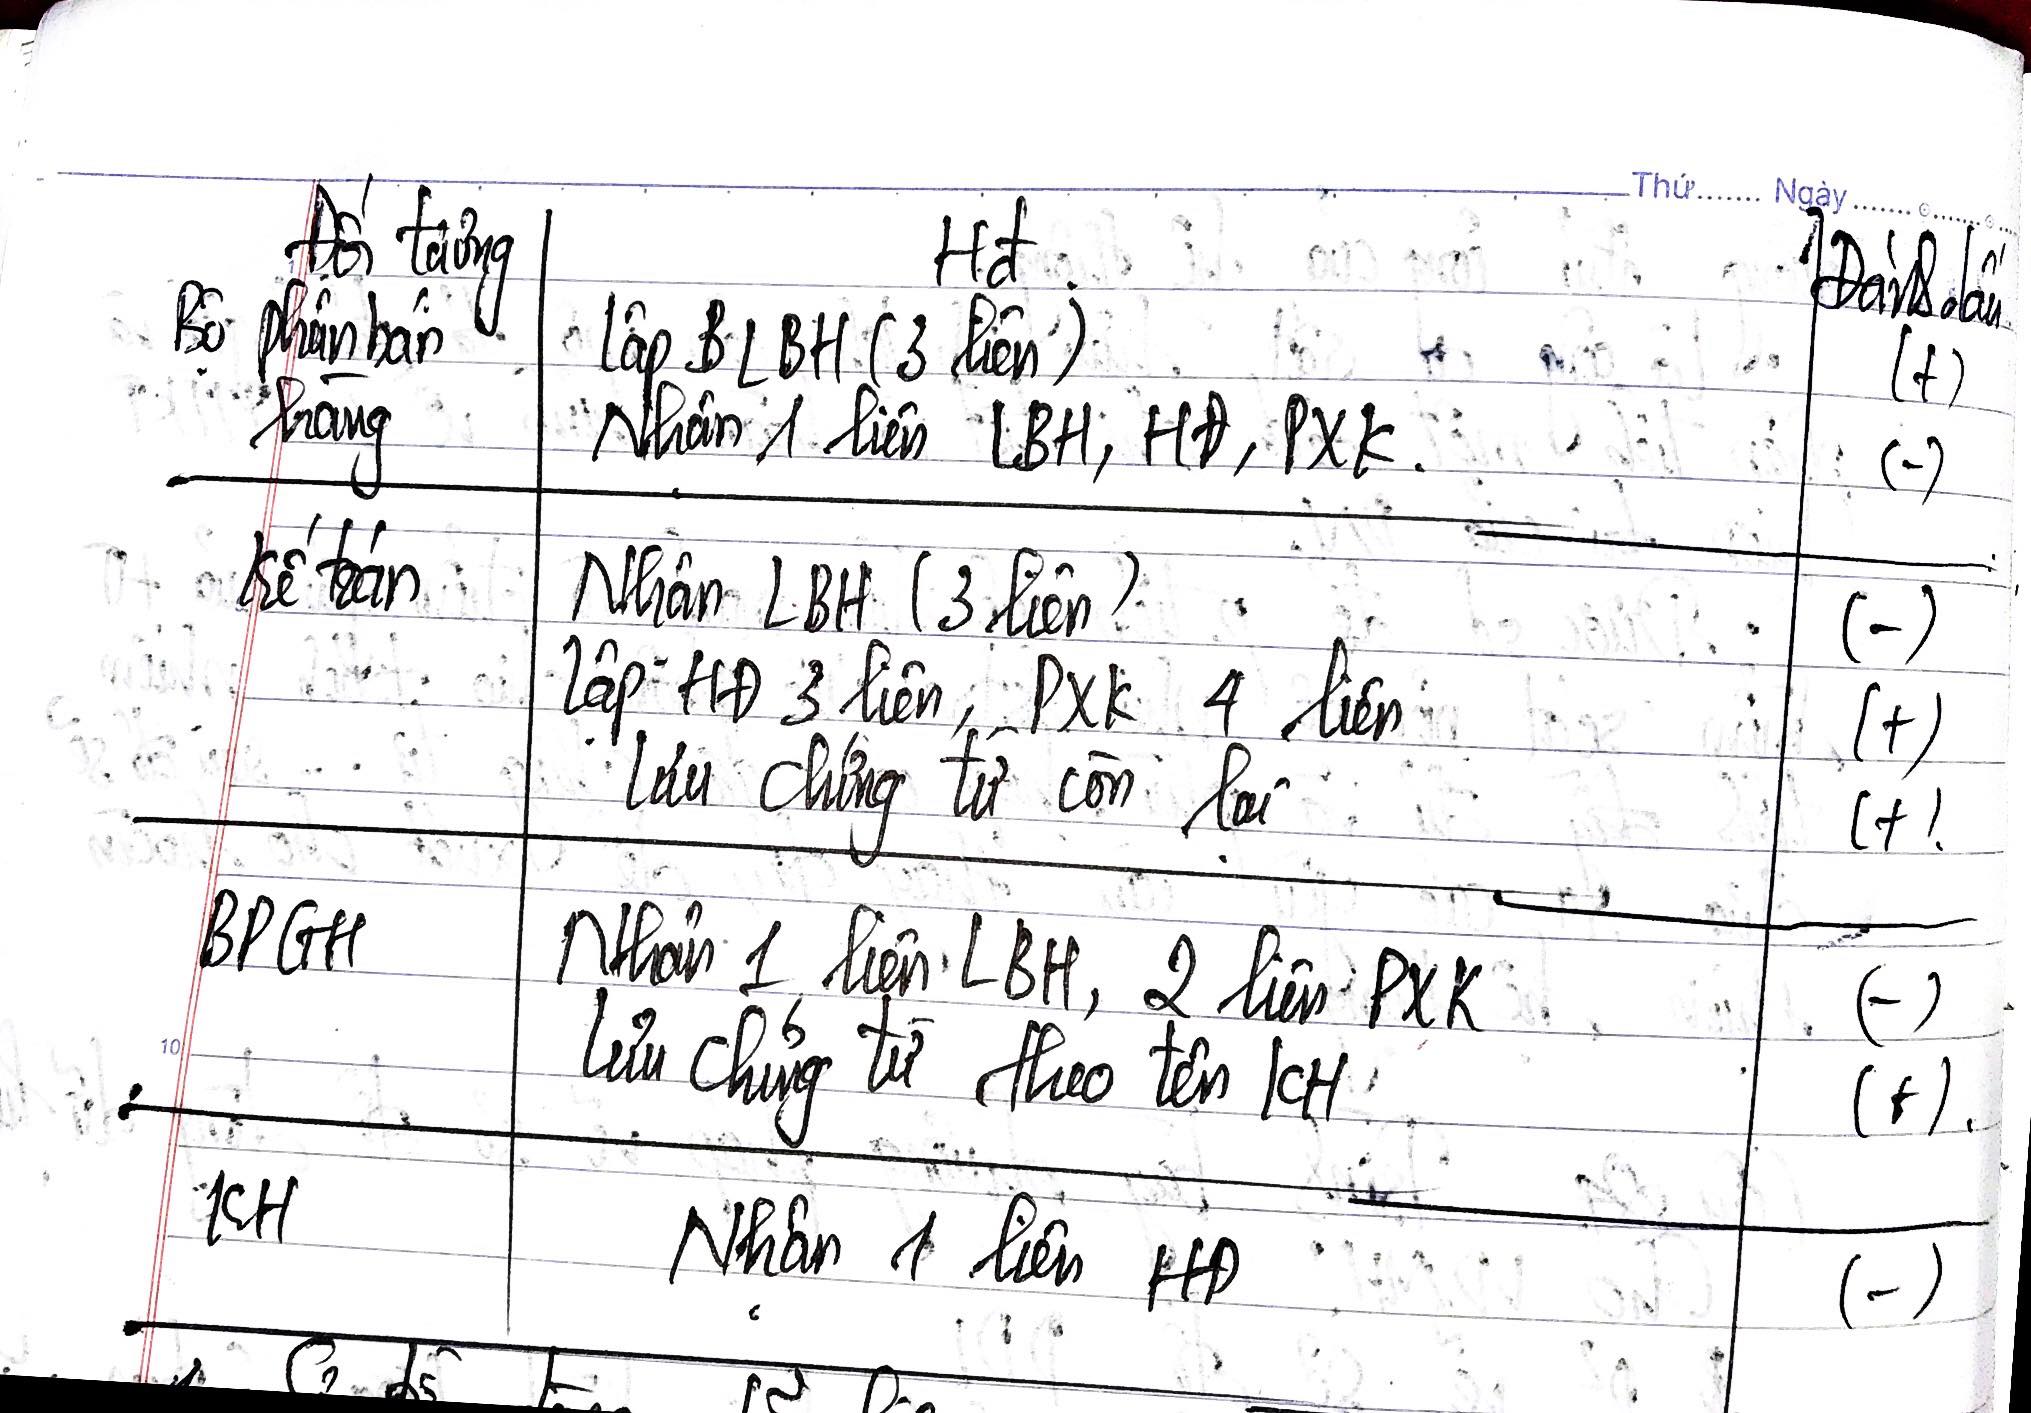 Thứ....... Ngày.......
Đối tượng Hđ Đánh dấu
Bộ phận bán lập BLBH (3 liên) (+)
hàng Nhận 1 liên LBH, HĐ, PXK. (-)
Kế toán Nhận LBH (3 liên) (-)
lập HĐ 3 liên, PXK 4 liên (+)
Lưu chứng từ còn lại (+)
BPGH Nhận 1 liên LBH, 2 liên PXK (-)
10 Lưu chứng từ theo tên KH (+).
KH Nhận 1 liên HĐ (-)